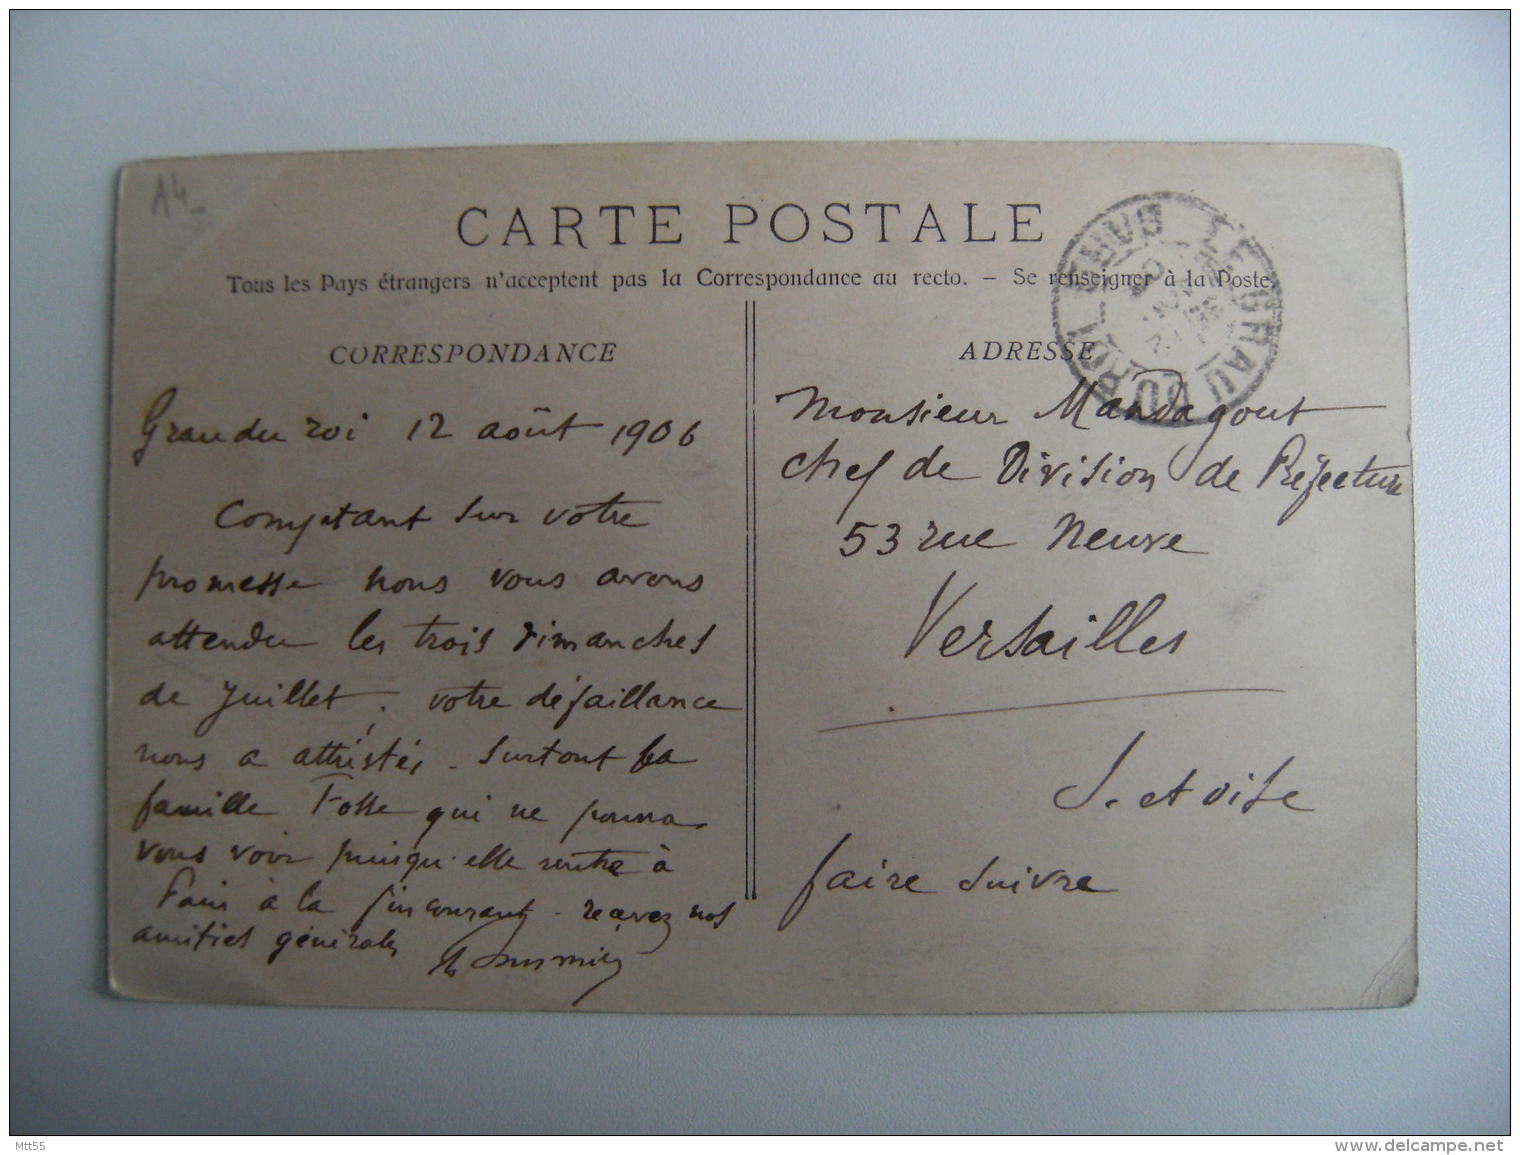 A4-
CARTE POSTALE
Tous les Pays étrangers n'acceptent pas la Correspondance au recto. — Se renseigner à la Poste.
CORRESPONDANCE
Grau du roi 12 août 1906
Comptant sur votre
promesse nous vous avons
attendu les trois dimanches
de juillet, votre défaillance
nous a attristés - surtout la
famille Fosse qui ne pourra
vous voir puisqu'elle rentre à
à la fin courant - recevez nos
amitiés générales
ADRESSE
Monsieur Mandagout
chef de Division de Préfecture
53 rue Neuve
Versailles
S. et oise
faire suivre
LE GRAU DU ROI - GARD
Mtt55
delcampe.net